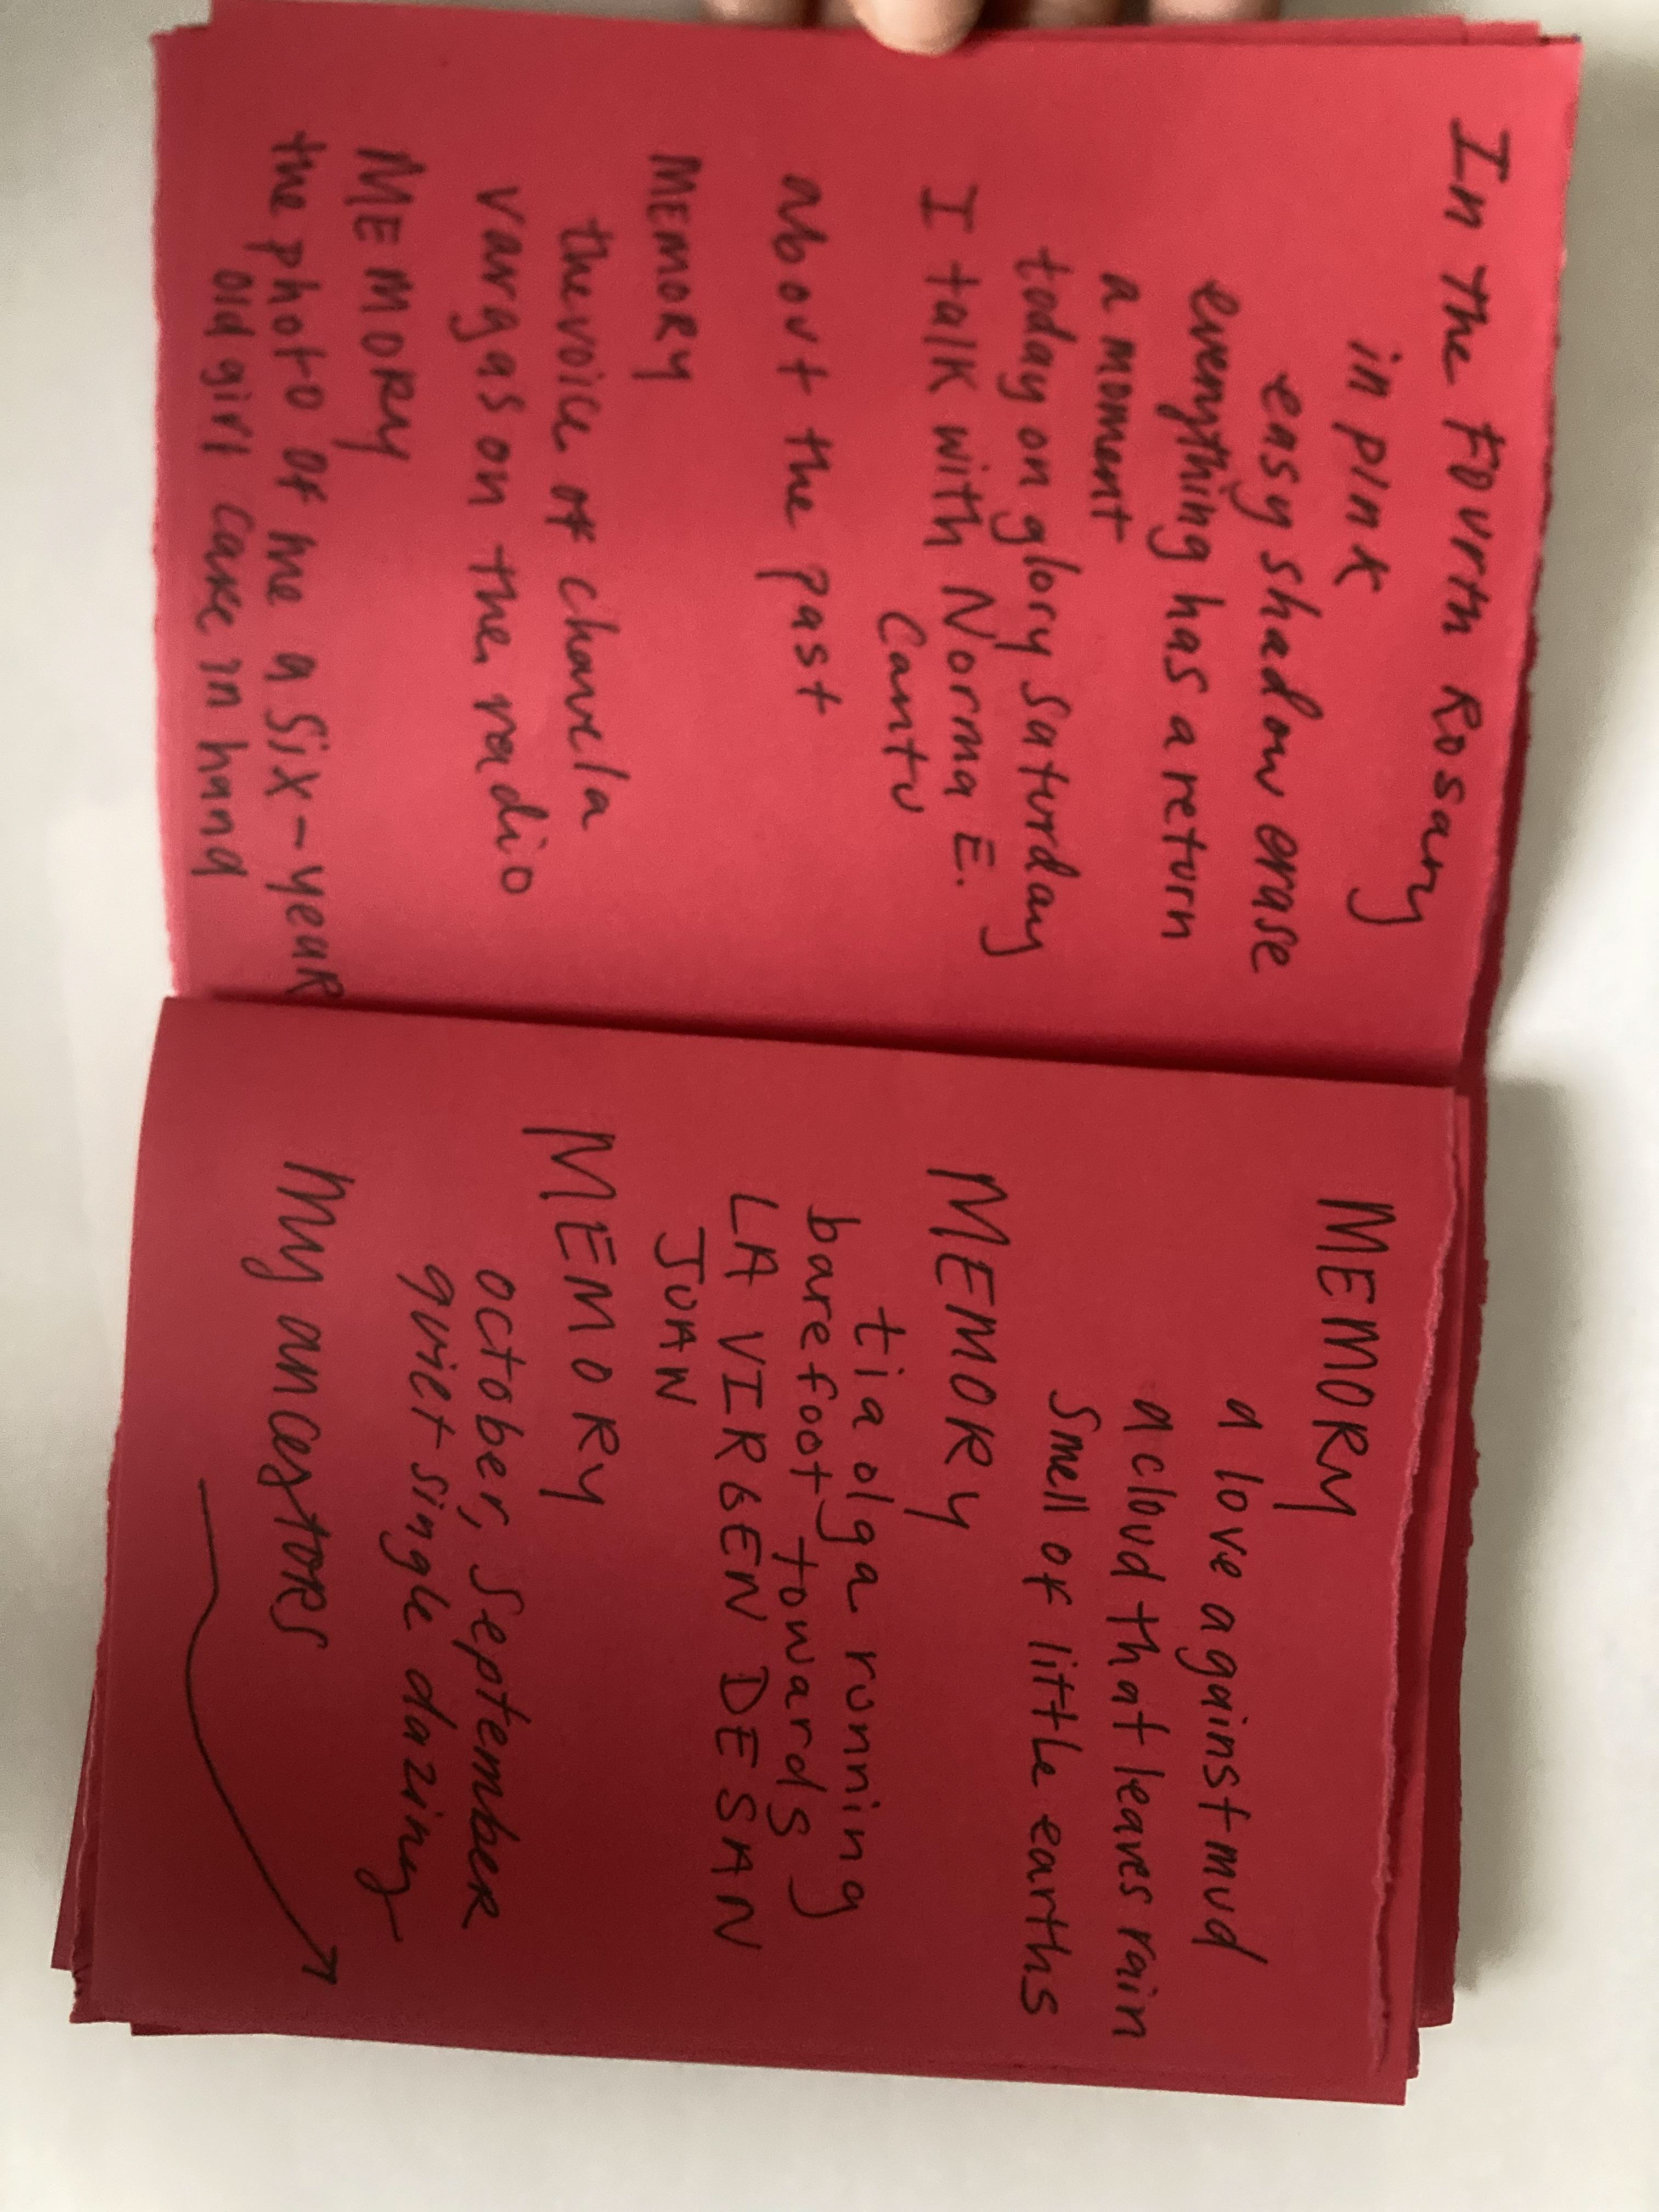 In the Fourth Rosary
in pink
easy shadow erase
everything has a return
a moment
today on glory saturday
I talk with Norma E.
Cantu
About the past
MEMORY
the voice of chavela
vargas on the radio
MEMORY
the photo of me a six-year
old girl cane in hand
MEMORY
a love against mud
a cloud that leaves rain
smell of little earths
MEMORY
tia olga running
barefoot towards
LA VIRGEN DE SAN
JUAN
MEMORY
october, september
quiet single dazing
My ancestors